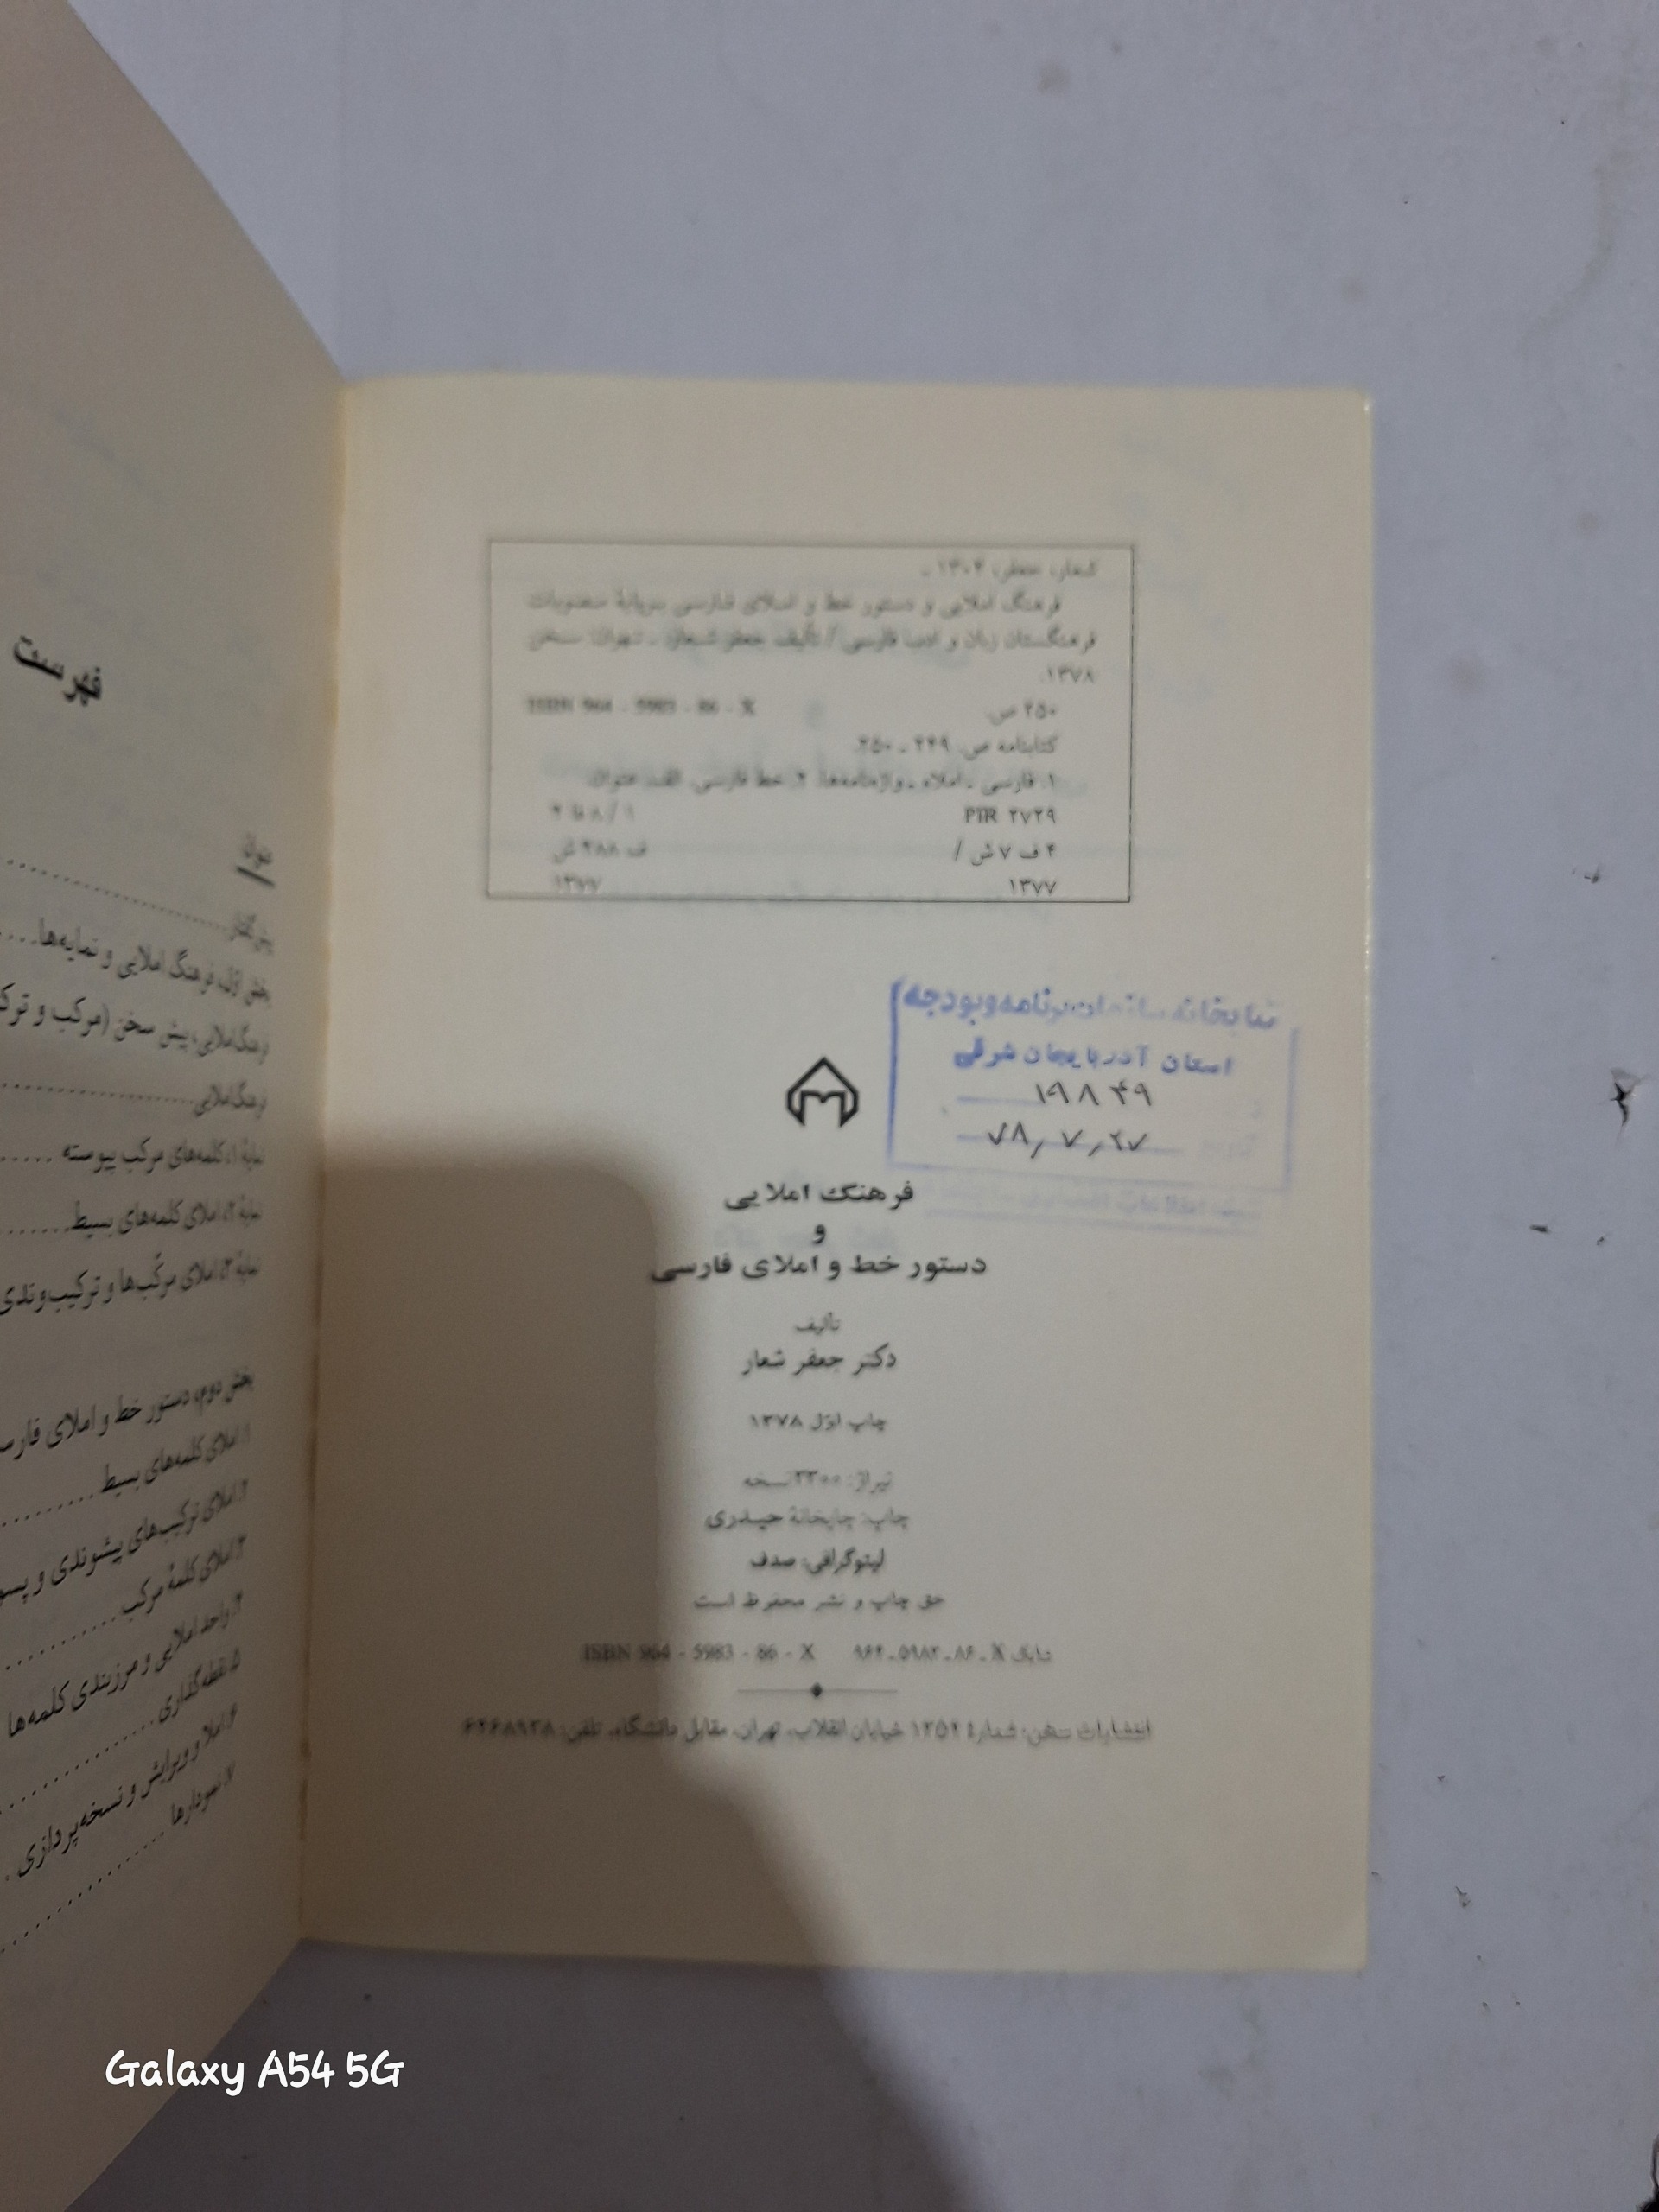 شعار، جعفر، ۱۳۰۴ ـ
فرهنگ املایی و دستور خط و املای فارسی برپایهٔ مصوبات
فرهنگستان زبان و ادب فارسی / تألیف جعفر شعار. ـ تهران: سخن
۱۳۷۸.
۲۵۰ ص. ISBN 964 - 5983 - 86 - X
کتابنامه ص. ۲۴۹ ـ ۲۵۰.
۱. فارسی ـ املاء ـ واژه‌نامه‌ها. ۲. خط فارسی. الف. عنوان.
PIR ۲۷۲۹
۴ ف ۷ ش / ف ۴۸۸ ش
۱۳۷۷ ۱۳۷۷
کتابخانه سازمان برنامه و بودجه
استان آذربایجان شرقی
۱۹۸۴۹
۷۸٫۷٫۲۷
فرهنگ املایی
و
دستور خط و املای فارسی
تألیف
دکتر جعفر شعار
چاپ اوّل ۱۳۷۸
تیراژ: ۳۳۰۰ نسخه
چاپ: چاپخانهٔ حیدری
لیتوگرافی: صدف
حق چاپ و نشر محفوظ است
شابک X ـ ۸۶ ـ ۵۹۸۳ ـ ۹۶۴ ISBN 964 - 5983 - 86 - X
انتشارات سخن: شمارهٔ ۱۳۵۲ خیابان انقلاب، تهران، مقابل دانشگاه، تلفن: ۶۴۶۸۹۳۸
فهرست
عنوان
پیش‌گفتار
بخش اوّل، فرهنگ املایی و نمایه‌ها
فرهنگ املایی، پیش سخن (مرکب و
فرهنگ املایی
نمایهٔ ۱، کلمه‌های مرکب پیوسته
نمایهٔ ۲، املای کلمه‌های بسیط
نمایهٔ ۳، املای مرکّب‌ها و ترکیب‌وندی
بخش دوم، دستور خط و املای
۱. املای کلمه‌های بسیط
۲. املای ترکیب‌های پیشوندی و
۳. املای کلمهٔ مرکب
۴. واحد املایی و مرزبندی کلمه‌ها
۵. نقطه‌گذاری
۶. املا و ویرایش و نسخه‌پردازی
۷. نمودارها
Galaxy A54 5G